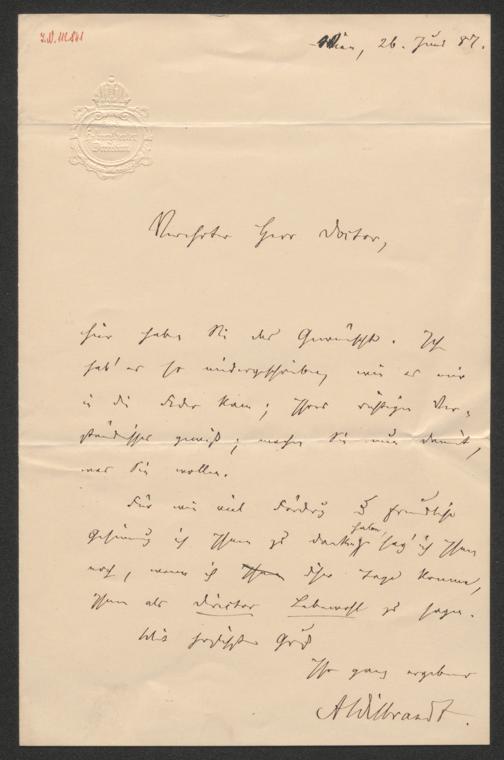 I.N. 111.841
Wien, 26. Juni 87.
Verehrter Herr Doctor,
hier haben Sie das Gewünschte. Ich
hab' es so niedergeschrieben, wie es mir
in die Feder kam; Ihres richtigen Ver-
ständnisses gewiß; machen Sie nun damit,
was Sie wollen.
Für wie viel Förderung u. freundliche
Gesinnung ich Ihnen zu danken haben, sag' ich Ihnen
noch, wenn ich dieser Tage komme,
Ihnen als Director Lebewohl zu sagen.
Mit herzlichstem Gruß
Ihr ganz ergebener
AWilbrandt.